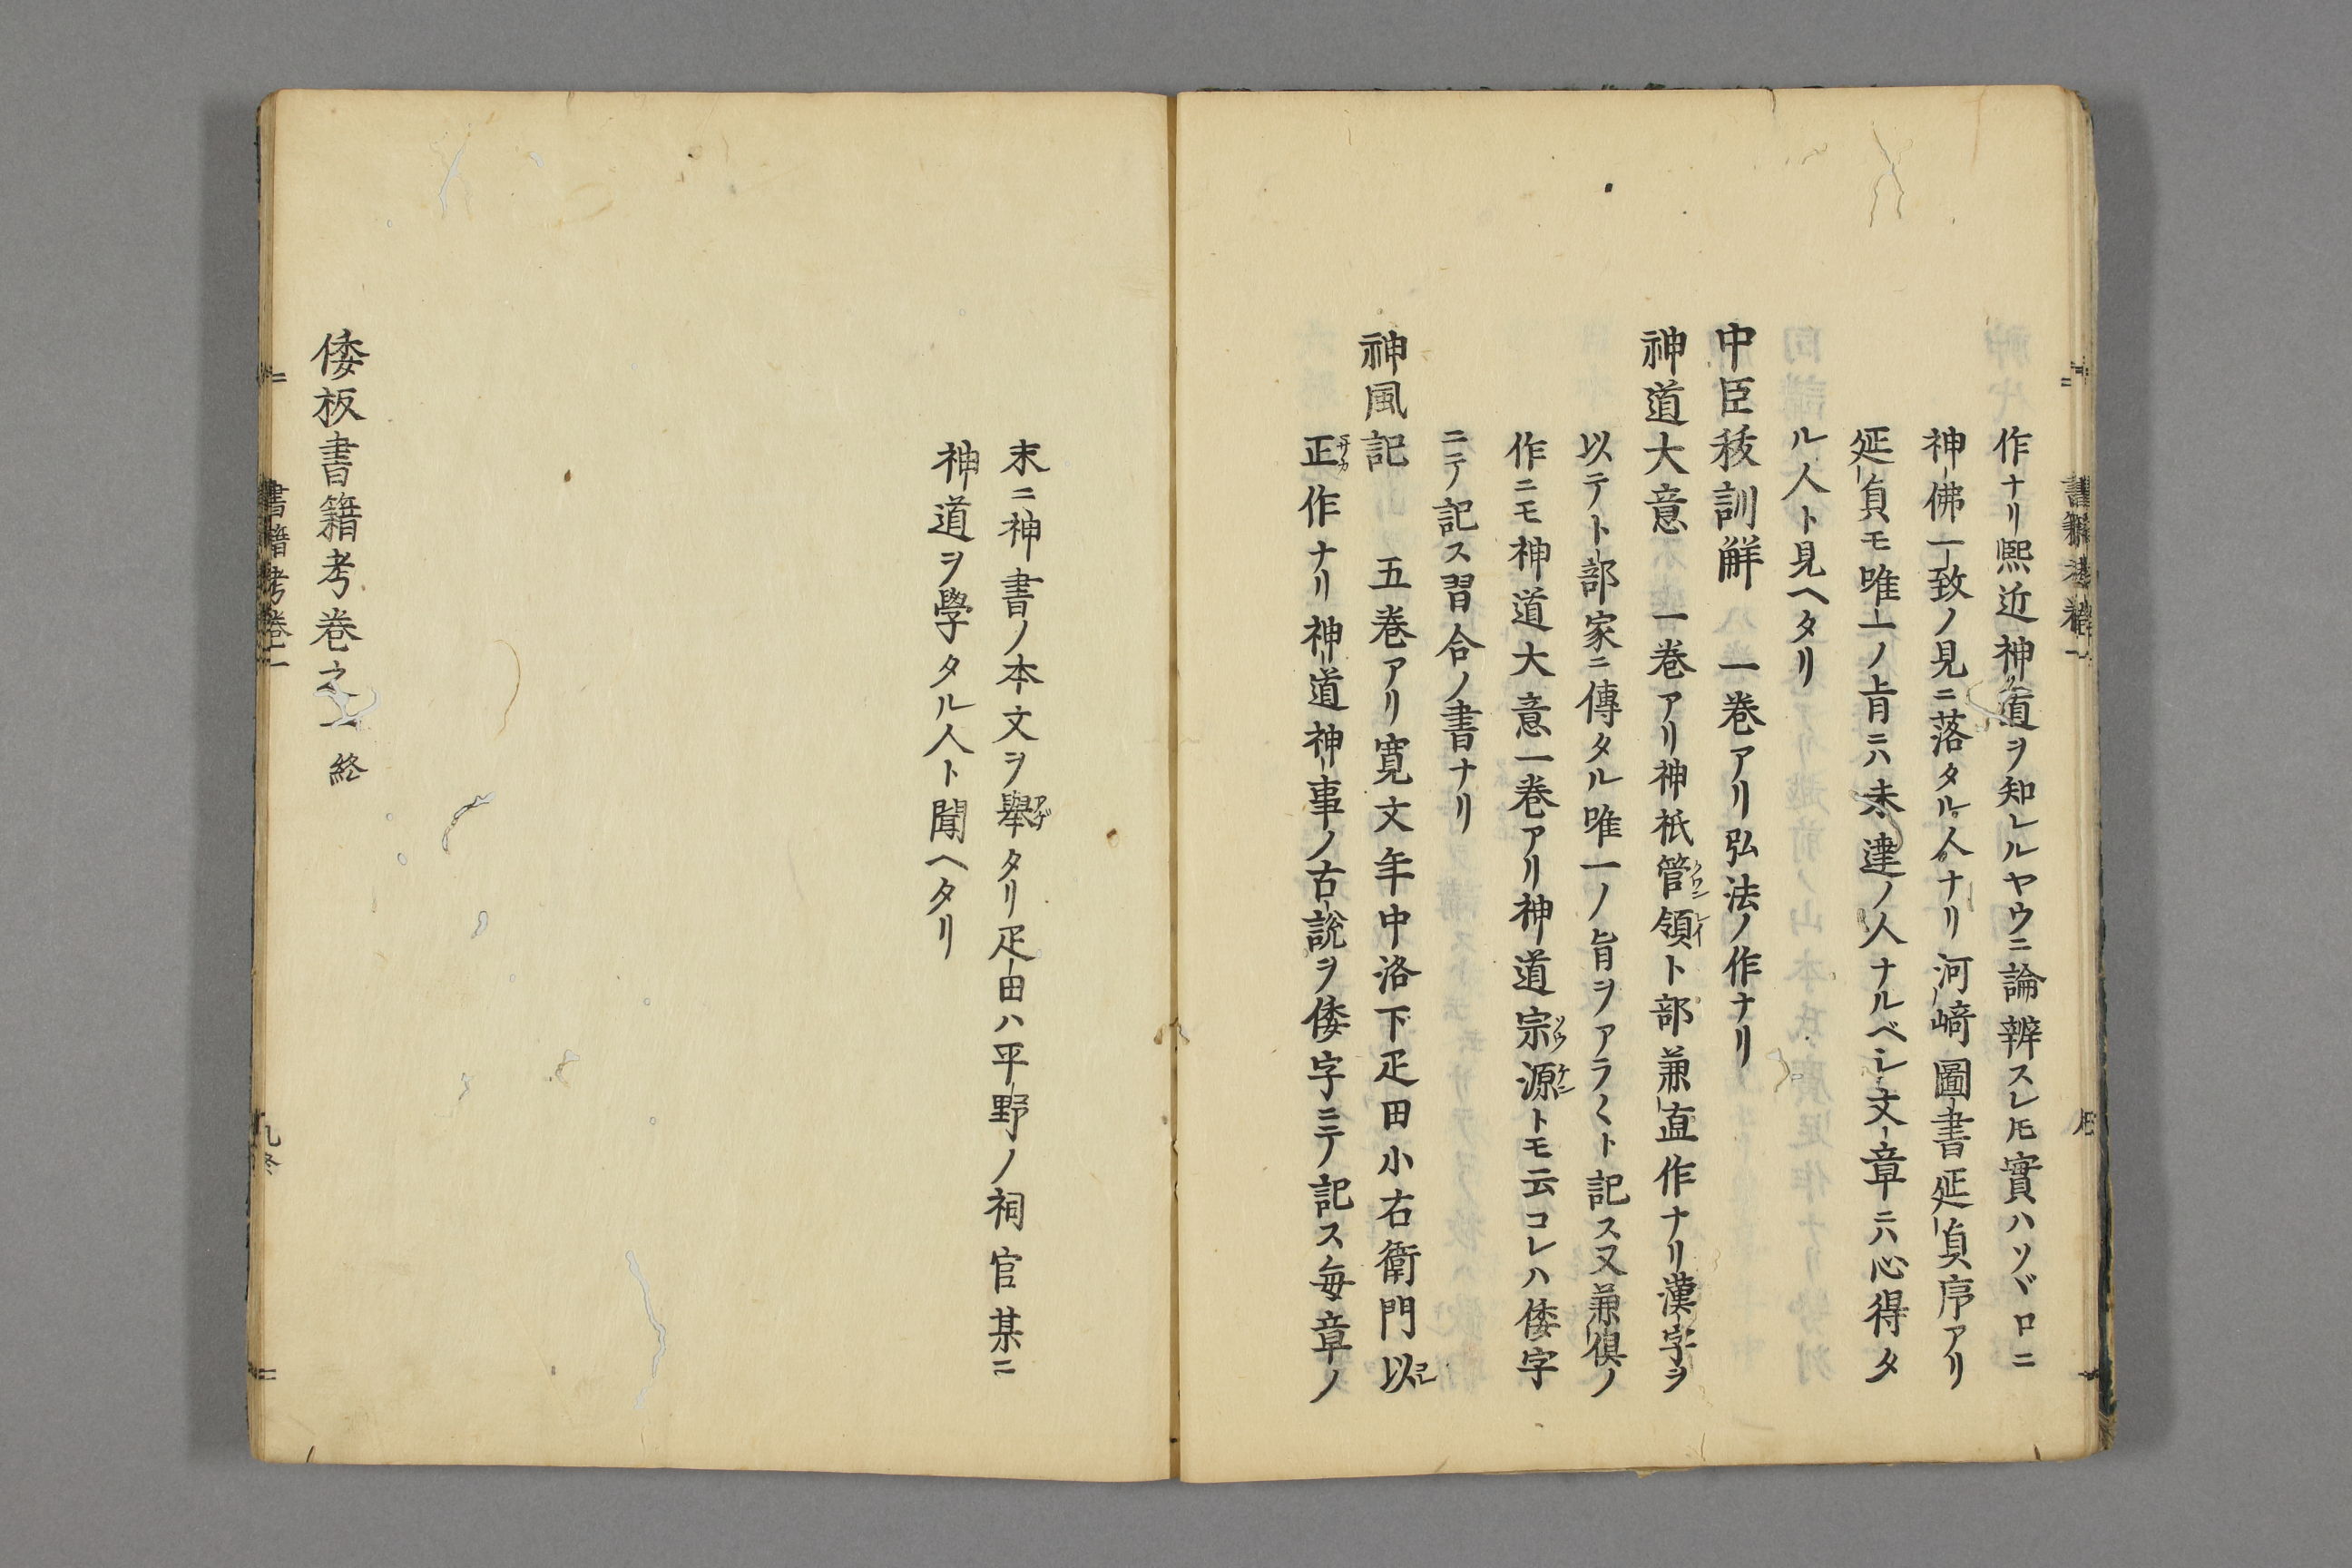 作ナリ熙近神道ヲ知レルヤウニ論辨スレ𪜈實ハソヾロニ
神佛一致ノ見ニ落タル人ナリ河﨑圖書延貞序アリ
延貞モ唯一ノ旨ニハ未達ノ人ナルベシ文章ニハ心得タ
ル人ト見ヘタリ
中臣秡訓解 一巻アリ弘法ノ作ナリ
神道大意 一巻アリ神祇管領ト部兼直作ナリ漢字ヲ
以テト部家ニ傳タル唯一ノ旨ヲアラ〱ト記ス又兼俱ノ
作ニモ神道大意一巻アリ神道宗源トモ云コレハ倭字
ニテ記ス習合ノ書ナリ
神風記 五巻アリ寛文年中洛下疋田小右衛門以
正作ナリ神道神事ノ古說ヲ倭字ニテ記ス毎章ノ
末ニ神書ノ本文ヲ舉タリ疋田ハ平野ノ祠官某ニ
神道ヲ學タル人ト聞ヘタリ
倭板書籍考巻之一 終
書籍考巻一 九終